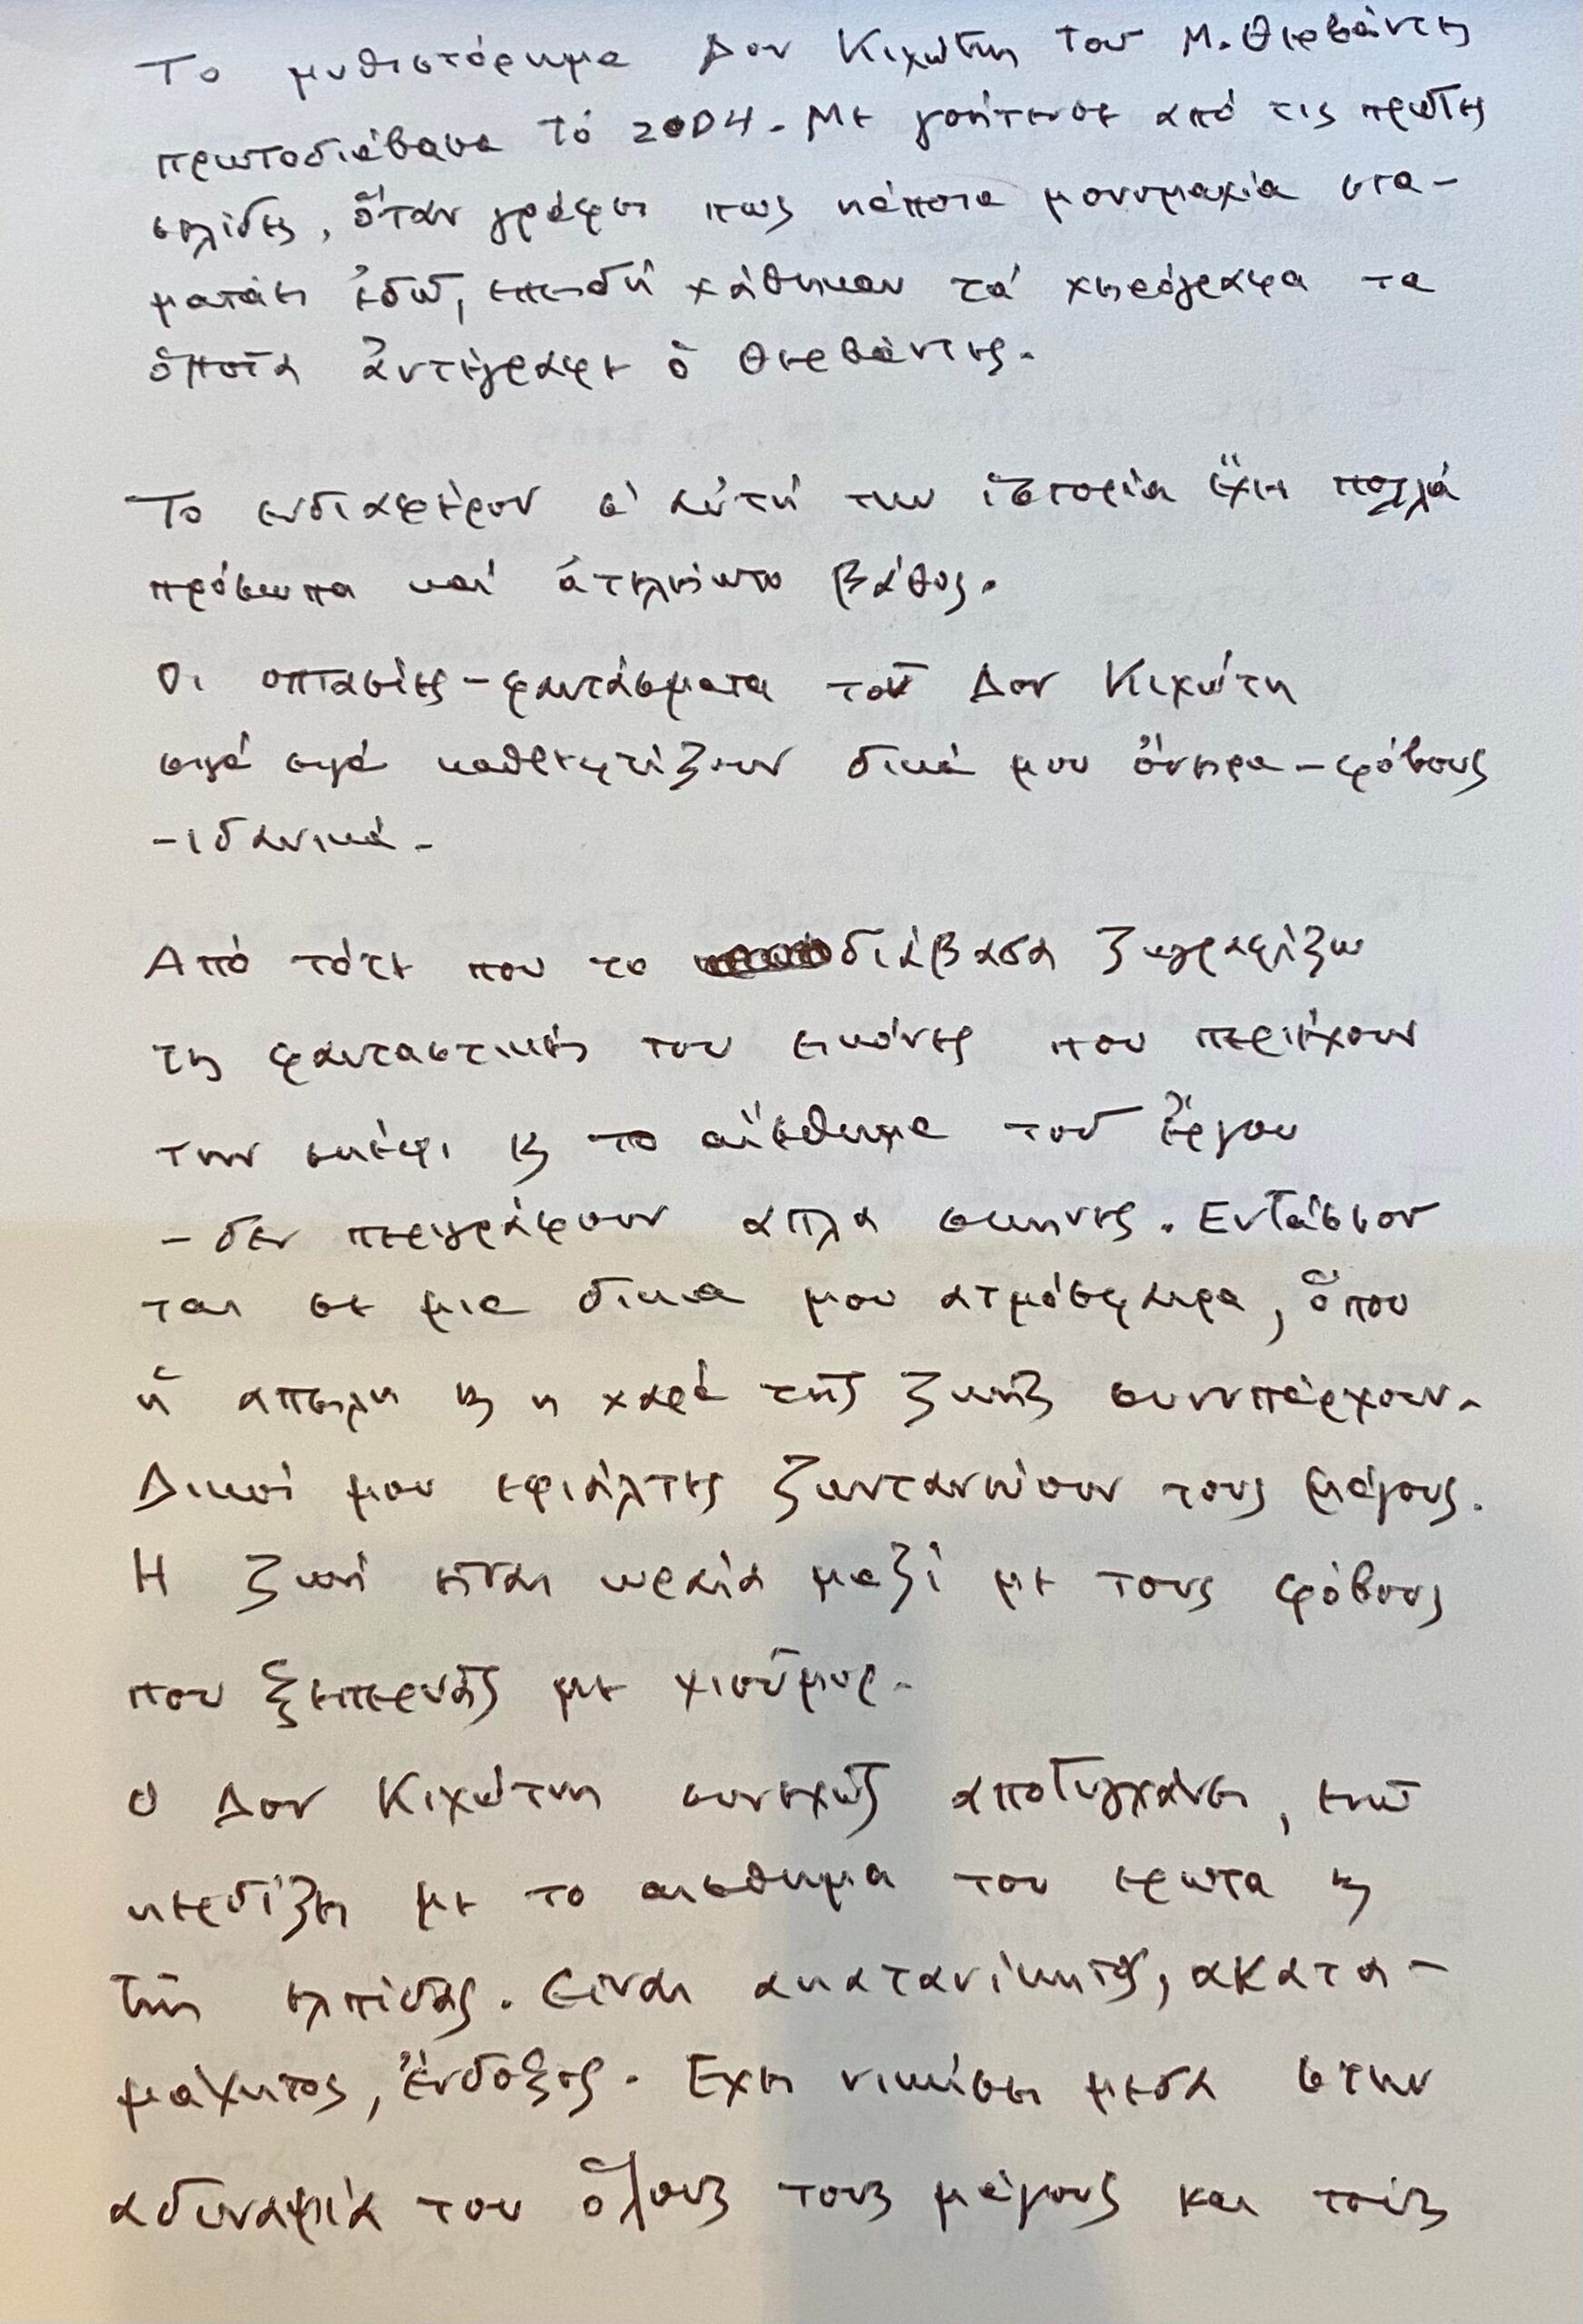 Το μυθιστόρημα Δον Κιχώτης του Μ. Θερβάντες
πρωτοδιάβασα τό 2004. Με γοήτευσε από τις πρώτες
σελίδες, ὅταν γράφει πως κάποια μονομαχία στα-
ματάει ἐδῶ, επειδή χάθηκαν τά χειρόγραφα τα
ὁποῖα ἀντέγραφε ὁ Θερβάντες.
Το ενδιαφέρον σ' αὐτή την ἱστορία ἔχει πολλά
πρόσωπα καί ἀτελείωτο βάθος.
Οι οπτασίες-φαντάσματα τοῦ Δον Κιχώτη
σιγά σιγά καθρεφτίζουν δικά μου ὄνειρα-φόβους
-ιδανικά-
Από τότε που το διάβασα ζωγραφίζω
τις φανταστικές του εικόνες που περιέχουν
την σκέψι κ το αἴσθημα τοῦ ἔργου
- δεν περιγράφουν απλα σκηνες. Εντάσσον
ται σε μια δικια μου ατμόσφαιρα, ὅπου
ἡ απειλη κ η χαρά τῆς ζωῆς συνυπάρχουν.
Δικοί μου εφιάλτες ζωντανεύουν τους μάγους.
Η ζωή είναι ωραία μαζί με τους φόβους
που ξεπερνᾶς με χιοῦμορ.
Ο Δον Κιχώτης συνεχῶς αποτυγχάνει, ενῶ
κερδίζει με το αισθημα του ερωτα κ
τῆς ελπίδας. Είναι ακατανίκητος, ακατα-
μάχητος, ἔνδοξος. Εχει νικήσει μεσα στην
αδυναμία του ὅλους τους μάγους και τούς